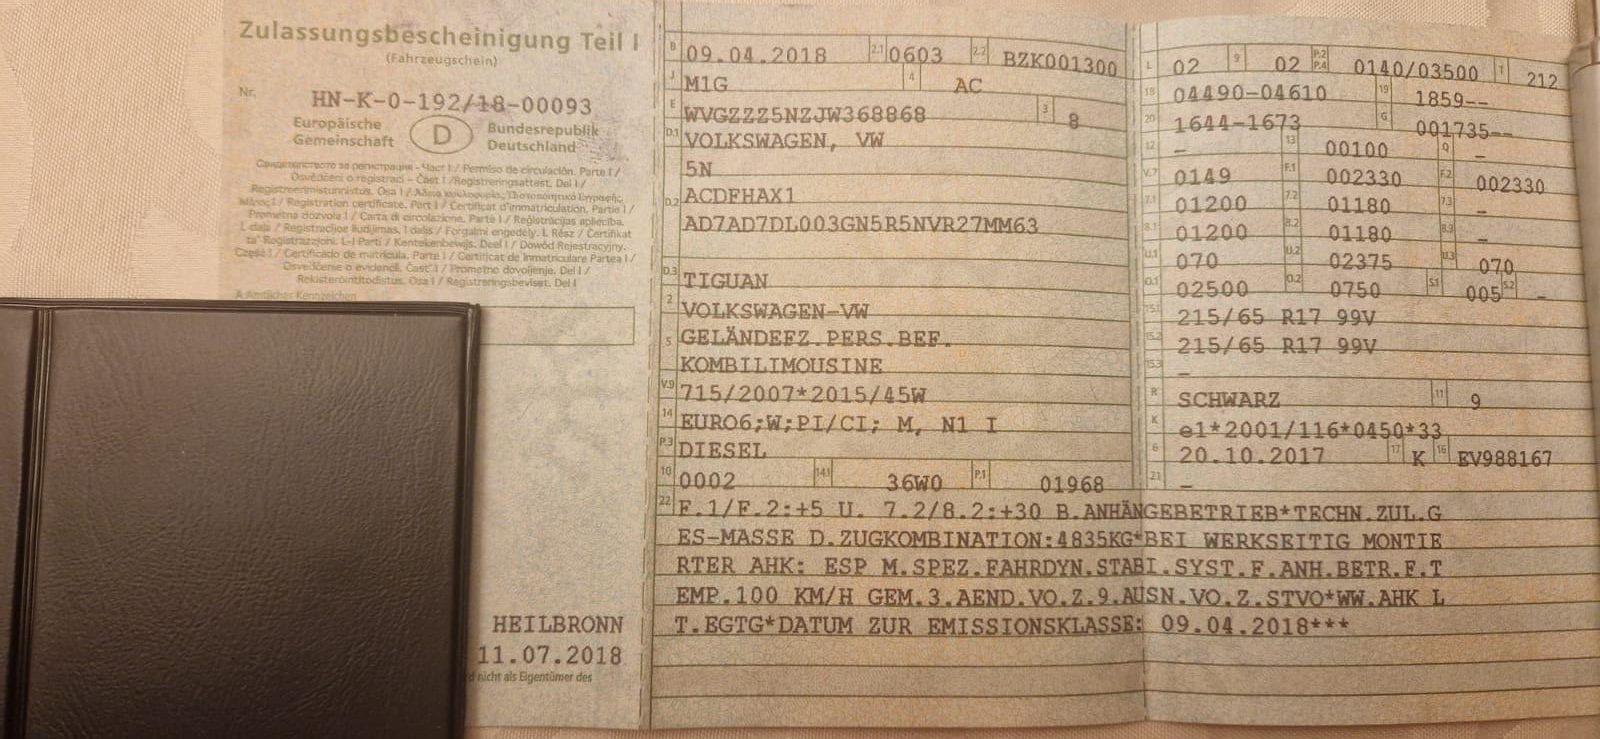 Zulassungsbescheinigung Teil I
(Fahrzeugschein)
Nr. HN-K-0-192/18-00093
Europäische Gemeinschaft D Bundesrepublik Deutschland
Свидетелство за регистрация - Част I / Permiso de circulación. Parte I /
Osvědčení o registraci - Část I / Registreringsattest. Del I /
Registreerimistunnistus. Osa I / Άδεια κυκλοφορίας.
Μέρος I / Registration certificate. Part I / Certificat d'immatriculation. Partie I /
Prometna dozvola I / Carta di circolazione. Parte I / Reģistrācijas apliecība.
I. daļa / Registracijos liudijimas. I dalis / Forgalmi engedély. I. Rész / Ċertifikat
ta' Reġistrazzjoni. L-I Parti / Kentekenbewijs. Deel I / Dowód Rejestracyjny.
Część I / Certificado de matrícula. Parte I / Certificat de înmatriculare. Partea I /
Osvedčenie o evidencii. Časť I / Prometno dovoljenje. Del I /
Rekisteröintitodistus. Osa I / Registreringsbeviset. Del I
A Amtliches Kennzeichen
HEILBRONN
11.07.2018
nicht als Eigentümer des
B 09.04.2018 2.1 0603 2.2 BZK001300
J M1G 4 AC
E WVGZZZ5NZJW368868 3 8
D.1 VOLKSWAGEN, VW
5N
D.2 ACDFHAX1
AD7AD7DL003GN5R5NVR27MM63
D.3 TIGUAN
2 VOLKSWAGEN-VW
5 GELÄNDEFZ.PERS.BEF.
KOMBILIMOUSINE
V.9 715/2007*2015/45W
14 EURO6;W;PI/CI; M, N1 I
P.3 DIESEL
10 0002 14.1 36W0 P.1 01968
L 02 9 02 P.2 P.4 0140/03500 T 212
18 04490-04610 19 1859--
20 1644-1673 G 001735--
12 - 13 00100 Q -
V.7 0149 F.1 002330 F.2 002330
7.1 01200 7.2 01180 7.3 -
8.1 01200 8.2 01180 8.3 -
U.1 070 U.2 02375 U.3 070
O.1 02500 O.2 0750 S.1 005 S.2 -
15.1 215/65 R17 99V
15.2 215/65 R17 99V
15.3 -
R SCHWARZ 11 9
K e1*2001/116*0450*33
6 20.10.2017 17 K 16 EV988167
21 -
22 F.1/F.2:+5 U. 7.2/8.2:+30 B.ANHÄNGEBETRIEB*TECHN.ZUL.G
ES-MASSE D.ZUGKOMBINATION:4835KG*BEI WERKSEITIG MONTIE
RTER AHK: ESP M.SPEZ.FAHRDYN.STABI.SYST.F.ANH.BETR.F.T
EMP.100 KM/H GEM.3.AEND.VO.Z.9.AUSN.VO.Z.STVO*WW.AHK L
T.EGTG*DATUM ZUR EMISSIONSKLASSE: 09.04.2018***